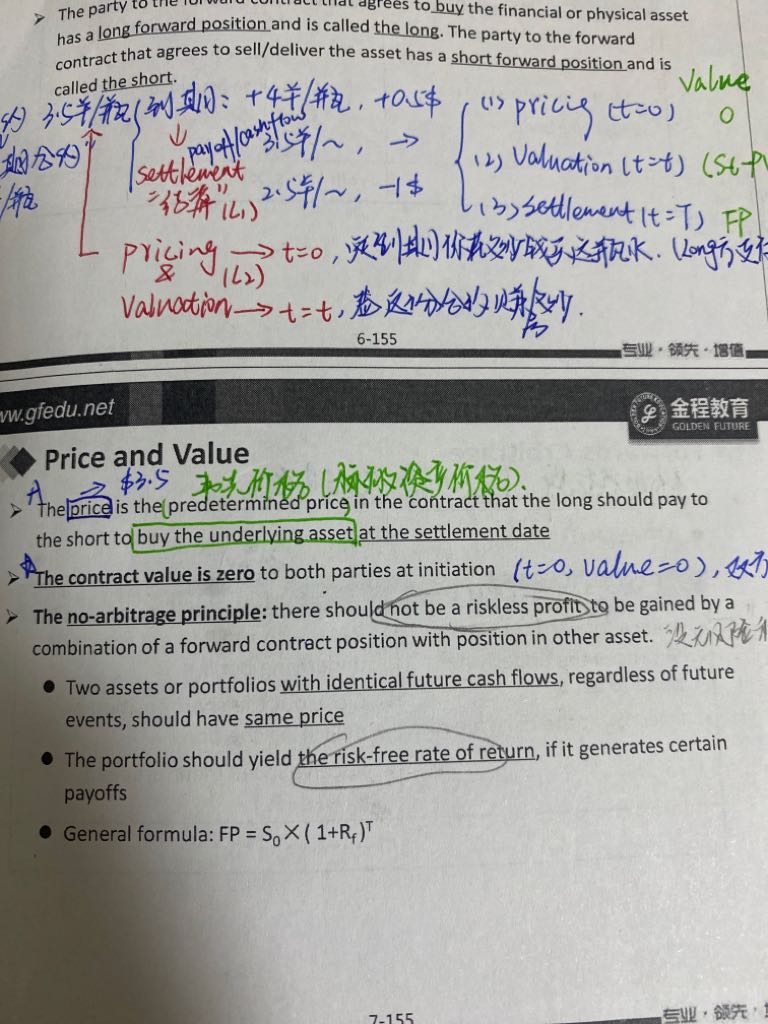 ➢ The party to the forward contract that agrees to buy the financial or physical asset
has a long forward position and is called the long. The party to the forward
contract that agrees to sell/deliver the asset has a short forward position and is
called the short.
Value
3.5羊/瓶 到期日: +4羊/瓶, +0.5$ (1) pricig (t=0) 0
payoff/cashflow
3.5羊/~, → (2) Valuation (t=t) (St-PV
settlement
"结算" (L1) 2.5羊/~, -1$ (3) settlement (t=T) FP
pricing → t=0,
& (L2)
Valuation → t=t,
6-155
专业·领先·增值
ww.gfedu.net
金程教育
GOLDEN FUTURE
Price and Value
→ $3.5
➢ The price is the (predetermined price) in the contract that the long should pay to
the short to buy the underlying asset at the settlement date
➢ The contract value is zero to both parties at initiation (t=0, value=0),
➢ The no-arbitrage principle: there should not be a riskless profit to be gained by a
combination of a forward contract position with position in other asset.
● Two assets or portfolios with identical future cash flows, regardless of future
events, should have same price
● The portfolio should yield the risk-free rate of return, if it generates certain
payoffs
● General formula: FP = S₀×(1+R_f)ᵀ
7-155
专业·领先·增